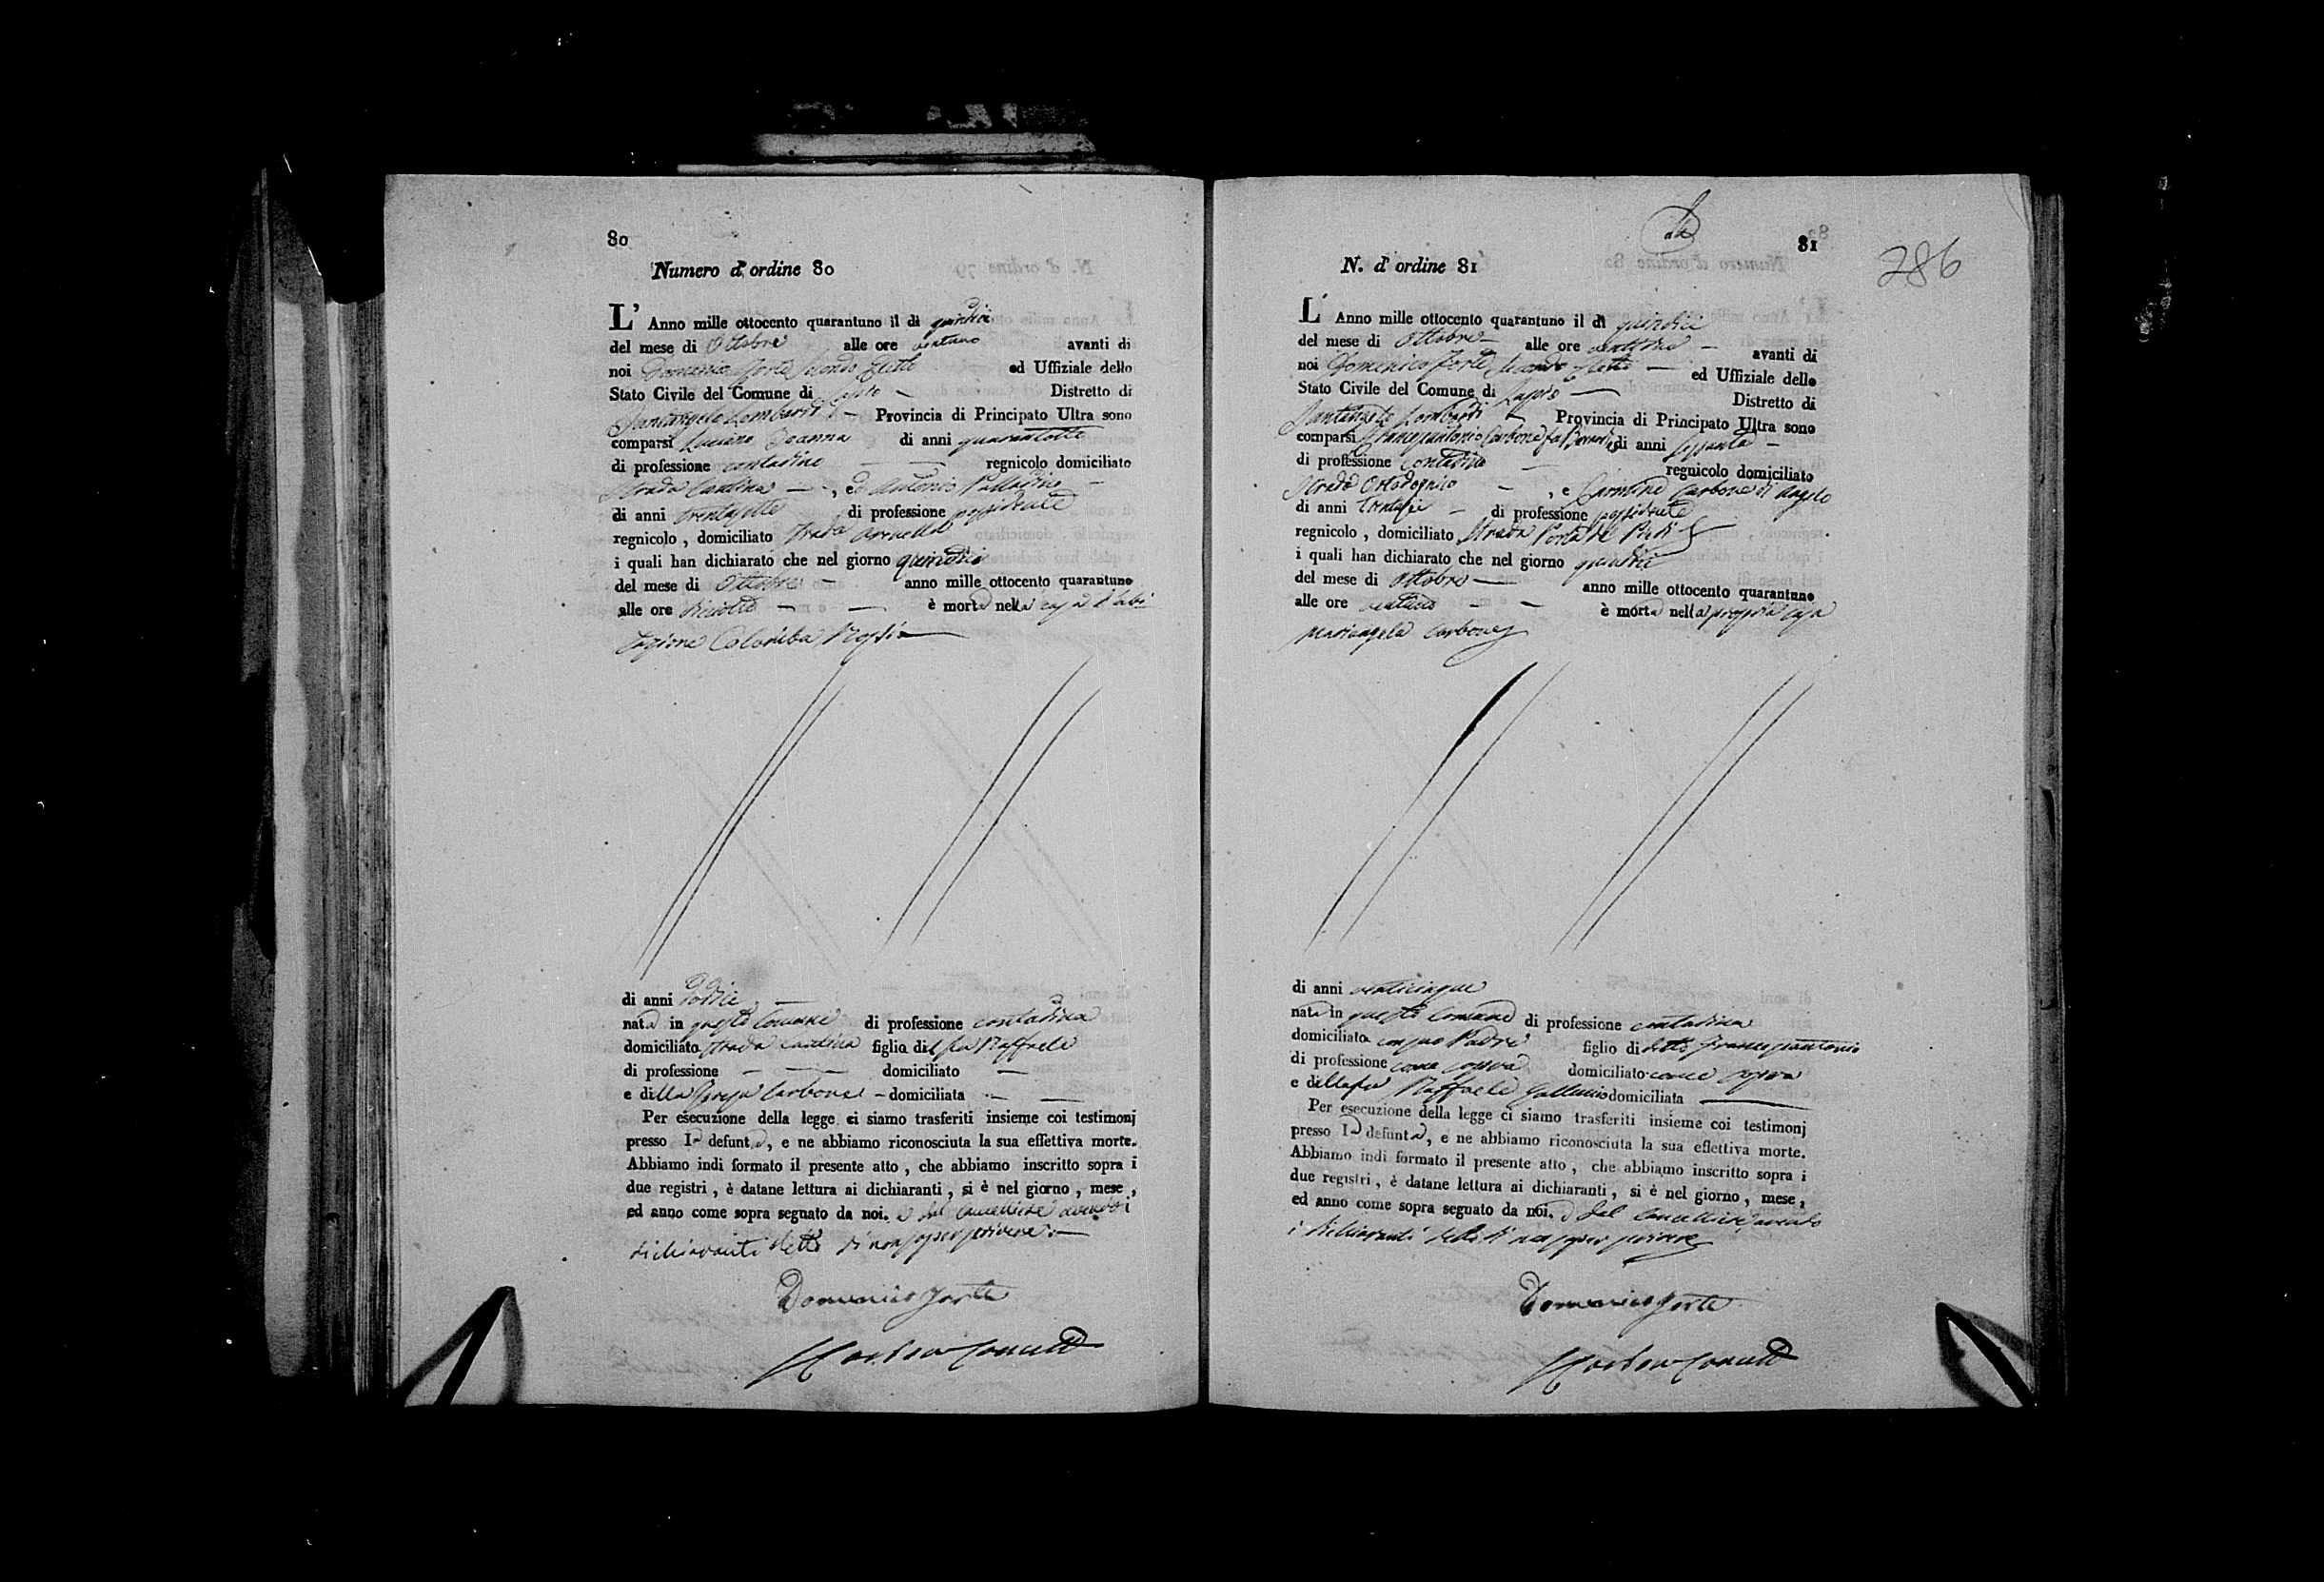 80
Numero d'ordine 80
L' Anno mille ottocento quarantuno il di quindici
del mese di Ottobre alle ore ventuno avanti di
noi Domenico Forte Secondo Eletto ed Uffiziale dello
Stato Civile del Comune di Lapio Distretto di
Santangelo Lombardi Provincia di Principato Ultra sono
comparsi Luciano Ioanna di anni quarantotto
di professione contadino regnicolo domiciliato
Strada Cantina, ed Antonio Palladino
di anni trentasette di professione possidente
regnicolo, domiciliato Strada
i quali han dichiarato che nel giorno quindici
del mese di Ottobre anno mille ottocento quarantuno
alle ore diciotto è morta nella casa d'abi
tazione Colomba
di anni dodici
nata in questo Comune di professione contadina
domiciliato strada cantina figlia del fu Raffaele
di professione domiciliato
e della Teresa Carbone domiciliata
Per esecuzione della legge ci siamo trasferiti insieme coi testimonj
presso la defunta, e ne abbiamo riconosciuta la sua effettiva morte.
Abbiamo indi formato il presente atto, che abbiamo inscritto sopra i
due registri, è datane lettura ai dichiaranti, si è nel giorno, mese,
ed anno come sopra segnato da noi. e dal Cancelliere avendo i
dichiaranti detto di non saper scrivere
Domenico Forte
81
286
N. d' ordine 81
L' Anno mille ottocento quarantuno il di quindici
del mese di Ottobre alle ore avanti di
noi Domenico Forte Secondo Eletto ed Uffiziale dello
Stato Civile del Comune di Lapio Distretto di
Santangelo Lombardi Provincia di Principato Ultra sono
comparsi Francescantonio Carbone fu di anni sessanta
di professione contadino regnicolo domiciliato
Strada, e Carmine Carbone di Angelo
di anni trentasei di professione possidente
regnicolo, domiciliato Strada Porta
i quali han dichiarato che nel giorno quindici
del mese di Ottobre anno mille ottocento quarantuno
alle ore è morta nella propria casa
Mariangela Carbone
di anni venticinque
nata in questo Comune di professione contadina
domiciliata con suo Padre figlio di detto Francescantonio
di professione come sopra domiciliato come sopra
e della fu Raffaele domiciliata
Per esecuzione della legge ci siamo trasferiti insieme coi testimonj
presso la defunta, e ne abbiamo riconosciuta la sua effettiva morte.
Abbiamo indi formato il presente atto, che abbiamo inscritto sopra i
due registri, è datane lettura ai dichiaranti, si è nel giorno, mese,
ed anno come sopra segnato da noi. e dal Cancelliere, avendo
i dichiaranti detto di non saper scrivere
Domenico Forte